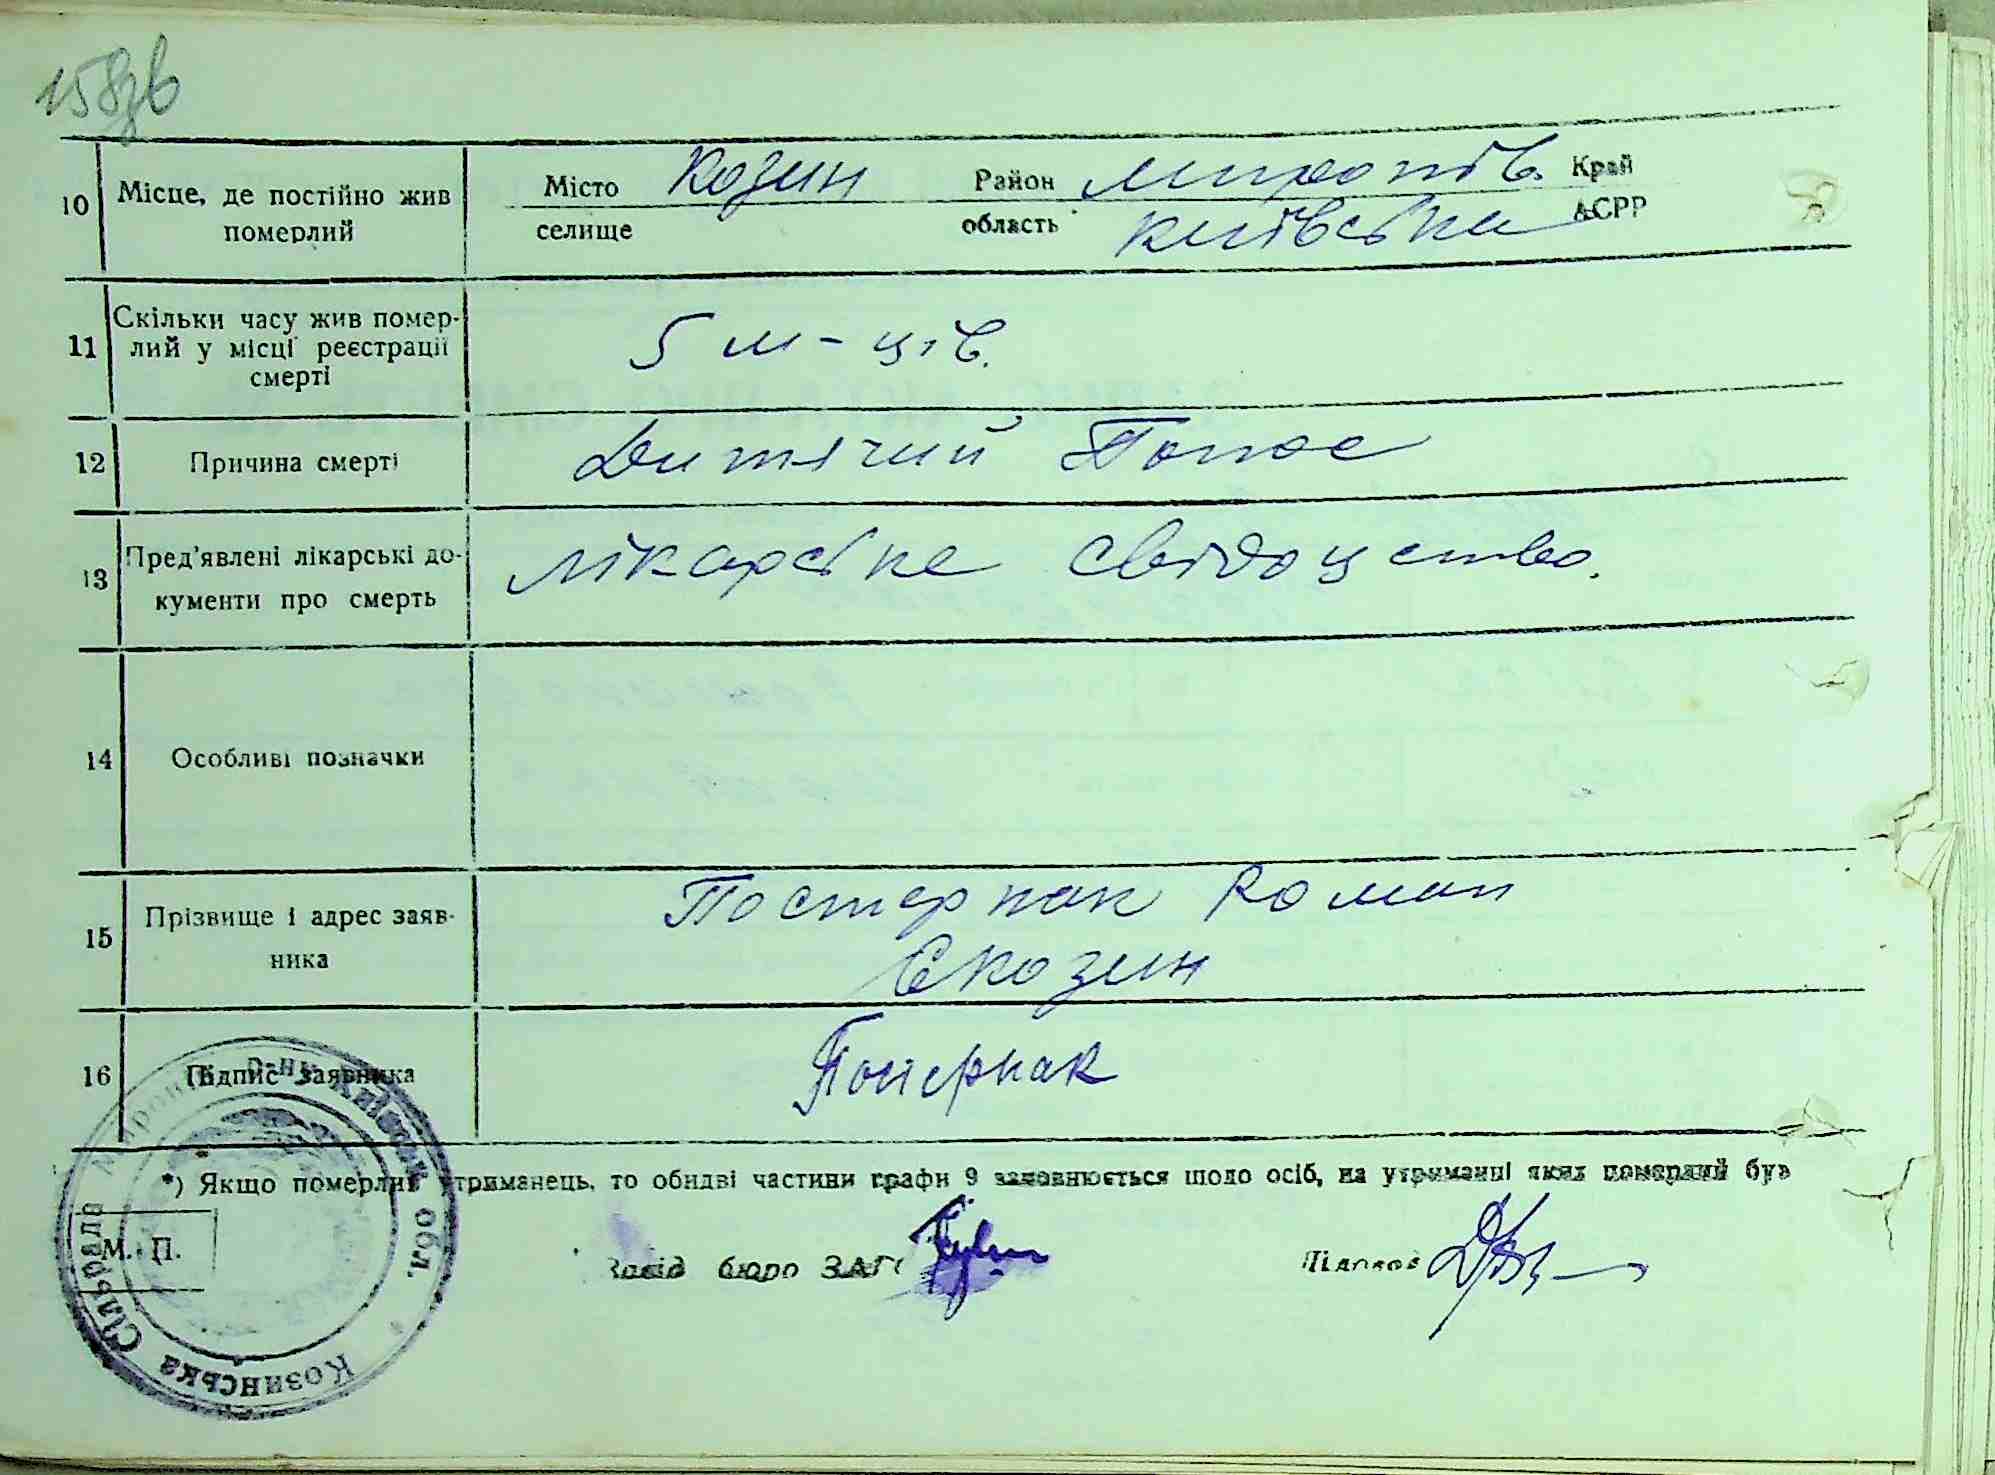 158зв
10 Місце, де постійно жив померлий
Місто селище Козин Район миронів. Край
область київська АСРР
11 Скільки часу жив помер-
лий у місці реєстрації
смерті
5 м-ців.
12 Причина смерті Дитячий Понос
13 Пред'явлені лікарські до-
кументи про смерть
лікарське свідоцство.
14 Особливі позначки
15 Прізвище і адрес заяв-
ника
Постернак Роман
С Козин
16 Підпис заявника
*) Якщо померлий утриманець, то обидві частини графи 9 заповнюється щодо осіб, на утриманні яких померлий був
М. П.
Завід бюро ЗАГС
Козинська Сільрада Миронів. р-ну Київськ. обл.